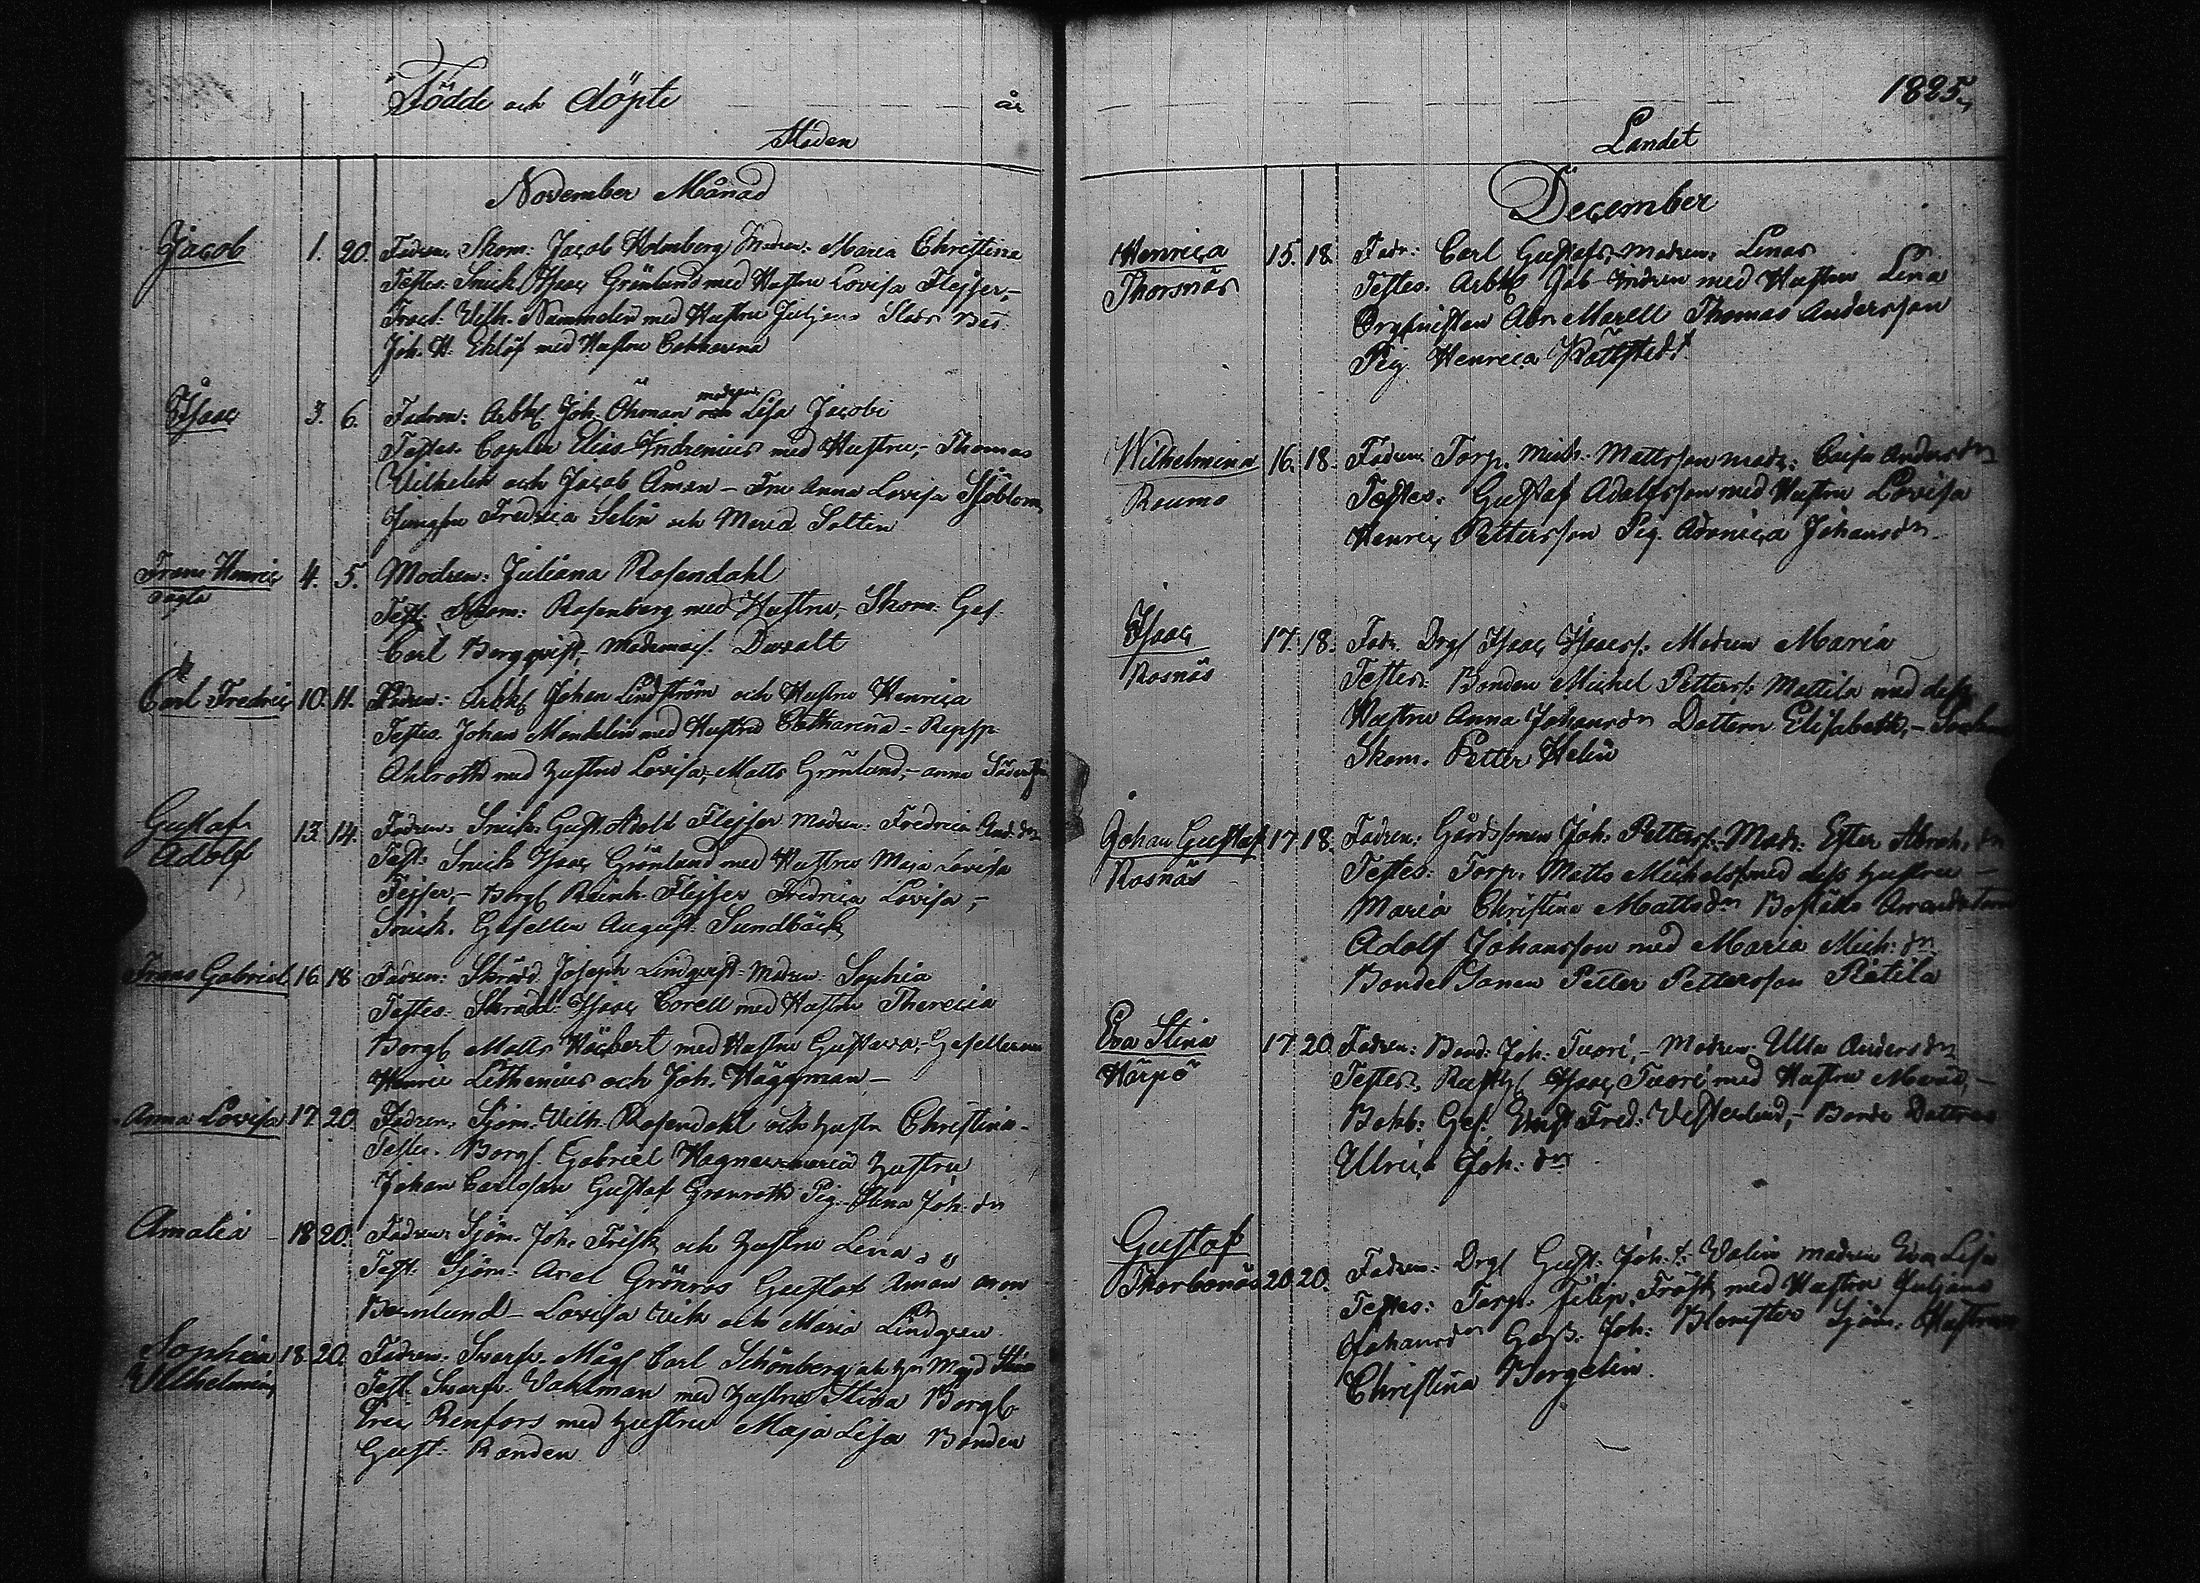 Födde och döpte år
Staden
November Månad
Jacob 1. 20. Fadren: Skom: Jacob Holmberg Modren: Maria Christina
Testes: Snick Isaac Grönlund med Hustru Lovisa Flejser,
Wilh. Nummelin med Hustru Juljana
Joh. H. Eklöf med Hustru Catharina
Isaac 3. 6. Fadren: Arbk Joh. Öhman och modren Lisa Jacobi
Testes. Elias Indrenius med Hustru, Thomas
Vilhelm och Jacob Åman - Fru Anna Lovisa Sjöblom,
Jungfru Fredrica Selin och Maria Soltin
Frans Henric 4. 5. Modren: Juliana Rosendahl
oägta
Test: Skom: Rosenberg med Hustru, Skom: Ges.
Carl Bergqvist,
Carl Fredric 10. 11. Fadren: Arbk Johan Lindström och Hustru Henrica
Testes. Johan Mondelin med Hustru Catharina - Repsp
Ahlroth med hustru Lovisa, Matts Grönlund, - Anna
Gustaf Adolf 13. 14. Fadren: Snick. Gust. Adolf Flejser Modren: Fredrica And.dr
Test: Snick Isaac Grönlund med Hustru Maja Lovisa
Flejser, - Borg Reinh. Flejser Fredrica Lovisa, -
Snick. Gesellen August Sundbäck
Frans Gabriel 16. 18 Fadren: Skrädd. Joseph Lindqvist - Modren Sophia
Testes: Skrädd: Isaac Corell med Hustru Therecia
Borg Matts Höckert med Hustru Gustava, - Gesellerna
Henric Lithenius och Joh. Häggman -
Anna Lovisa 17. 20. Fadren: Sjöm: Vilh. Rosendahl och hustr Christina -
Testes. Borg. Gabriel Wagner Maria hustru
Johan Carlsson Gustaf Grönroth Pig. Stina Joh. dr
Amalia - 18 20. Fadren: Sjöm. Joh. Frisk och hustru Lena
Test: Sjöm: Axel Grönros Gustaf Åman
Bernlund - Lovisa och Maria Lindgren
Sophia Wilhelmina 18. 20. Fadren: Svarfv. Måg Carl Schönberg och h. Magd Stina
Test: Svarfv. Vahlman med hustru Stina Borg
Eric Renfors med hustru Maja Lisa Bonden
Gust: Randen
1825.
Landet
December
Henrica 15. 18. Fadr: Carl Gustafs. Modren: Lena
Thorsnäs
Testes. Arbk Jab med Hustru Lena
Abr. Morell Thomas Andersson
Pig. Henrica
Wilhelmina 16. 18. Fadren Torp. Mich. Mattsson Modr: Caisa Andersdr
Raumo
Testes: Gustaf Adolfsson med Hustru Lovisa
Henric Pettersson Pig. Johansdr
Isaac 17. 18. Fadr. Drg Isaac Isacss: Modren Maria
Rosnäs
Testes: Bonden Michel Petters: Mattila med dess
Hustru Anna Johansdr Dottern Elisabeth, -
Skom. Petter Helin
Johan Gustaf 17 18. Fadren: Gårdssonen Joh: Petters: Modr: Ester Abrah: dr
Rosnäs
Testes: Torp. Matts Michels. med dess hustru -
Maria Christina Mattsdr
Adolf Johansson med Maria Mich: dr
Bonde Sonen Petter Pettersson
Eva Stina 17. 20. Fadren: Bond: Joh: Tuori, - Modren: Ulla Andersdr
Hörpö
Testes. Isaac Tuori med Hustru Maria, -
Bokb: Ges: Fred: Vesterlund, - Bonde Dottren
Ulrica Joh: dr
Gustaf 20. 20. Fadren: Drg Gust. Joh. s. Valin Modren Eva Lisa
Testes: Torp. Filip. Frösk med Hustru Juljana
Johansdr Joh: Sjöm: Hustrun
Christina Bergelin.